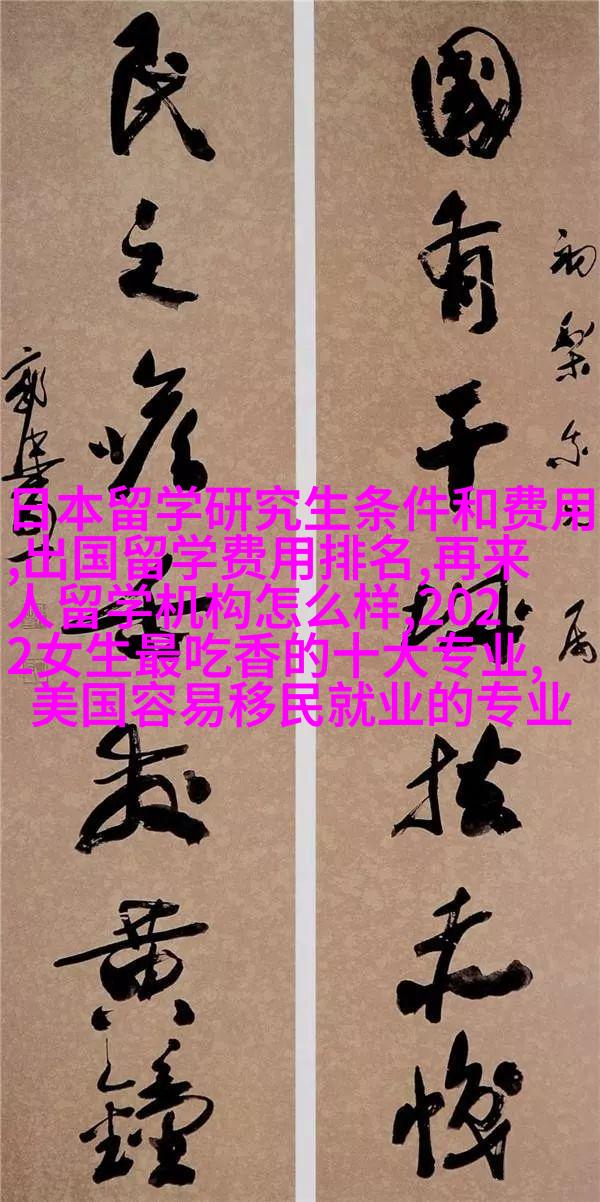 國有干城扶赤幟
民之喉舌發黃鐘
日本留学研究生条件和费用
,出国留学费用排名,再来
人留学机构怎么样,202
2女生最吃香的十大专业,
美国容易移民就业的专业